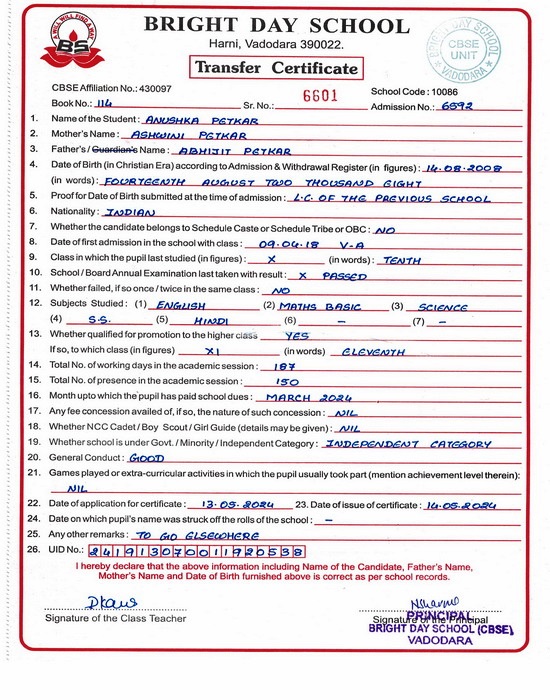 A WILL WILL FIND A WAY
BS
BRIGHT DAY SCHOOL
Harni, Vadodara 390022.
BRIGHT DAY SCHOOL
CBSE
UNIT
VADODARA
Transfer Certificate
CBSE Affiliation No.: 430097
School Code : 10086
Book No.: 114 Sr. No.: 6601 Admission No.: 6592
1. Name of the Student : ANUSHKA PETKAR
2. Mother's Name : ASHWINI PETKAR
3. Father's / Guardian's Name : ABHIJIT PETKAR
4. Date of Birth (in Christian Era) according to Admission & Withdrawal Register (in figures) : 14.08.2008
(in words) : FOURTEENTH AUGUST TWO THOUSAND EIGHT
5. Proof for Date of Birth submitted at the time of admission : L.C. OF THE PREVIOUS SCHOOL
6. Nationality : INDIAN
7. Whether the candidate belongs to Schedule Caste or Schedule Tribe or OBC : NO
8. Date of first admission in the school with class : 09.04.18 V-A
9. Class in which the pupil last studied (in figures) : X (in words) : TENTH
10. School / Board Annual Examination last taken with result : X PASSED
11. Whether failed, if so once / twice in the same class : NO
12. Subjects Studied : (1) ENGLISH (2) MATHS BASIC (3) SCIENCE
(4) S.S. (5) HINDI (6) – (7) –
13. Whether qualified for promotion to the higher class YES
If so, to which class (in figures) XI (in words) ELEVENTH
14. Total No. of working days in the academic session : 187
15. Total No. of presence in the academic session : 150
16. Month upto which the pupil has paid school dues : MARCH 2024
17. Any fee concession availed of, if so, the nature of such concession : NIL
18. Whether NCC Cadet / Boy Scout / Girl Guide (details may be given) : NIL
19. Whether school is under Govt. / Minority / Independent Category : INDEPENDENT CATEGORY
20. General Conduct : GOOD
21. Games played or extra-curricular activities in which the pupil usually took part (mention achievement level therein):
NIL
22. Date of application for certificate : 13.05.2024 23. Date of issue of certificate : 14.05.2024
24. Date on which pupil's name was struck off the rolls of the school : –
25. Any other remarks : TO GO ELSEWHERE
26. UID No.: 241913070011920538
I hereby declare that the above information including Name of the Candidate, Father's Name,
Mother's Name and Date of Birth furnished above is correct as per school records.
Signature of the Class Teacher
Signature of the Principal
PRINCIPAL
BRIGHT DAY SCHOOL (CBSE)
VADODARA